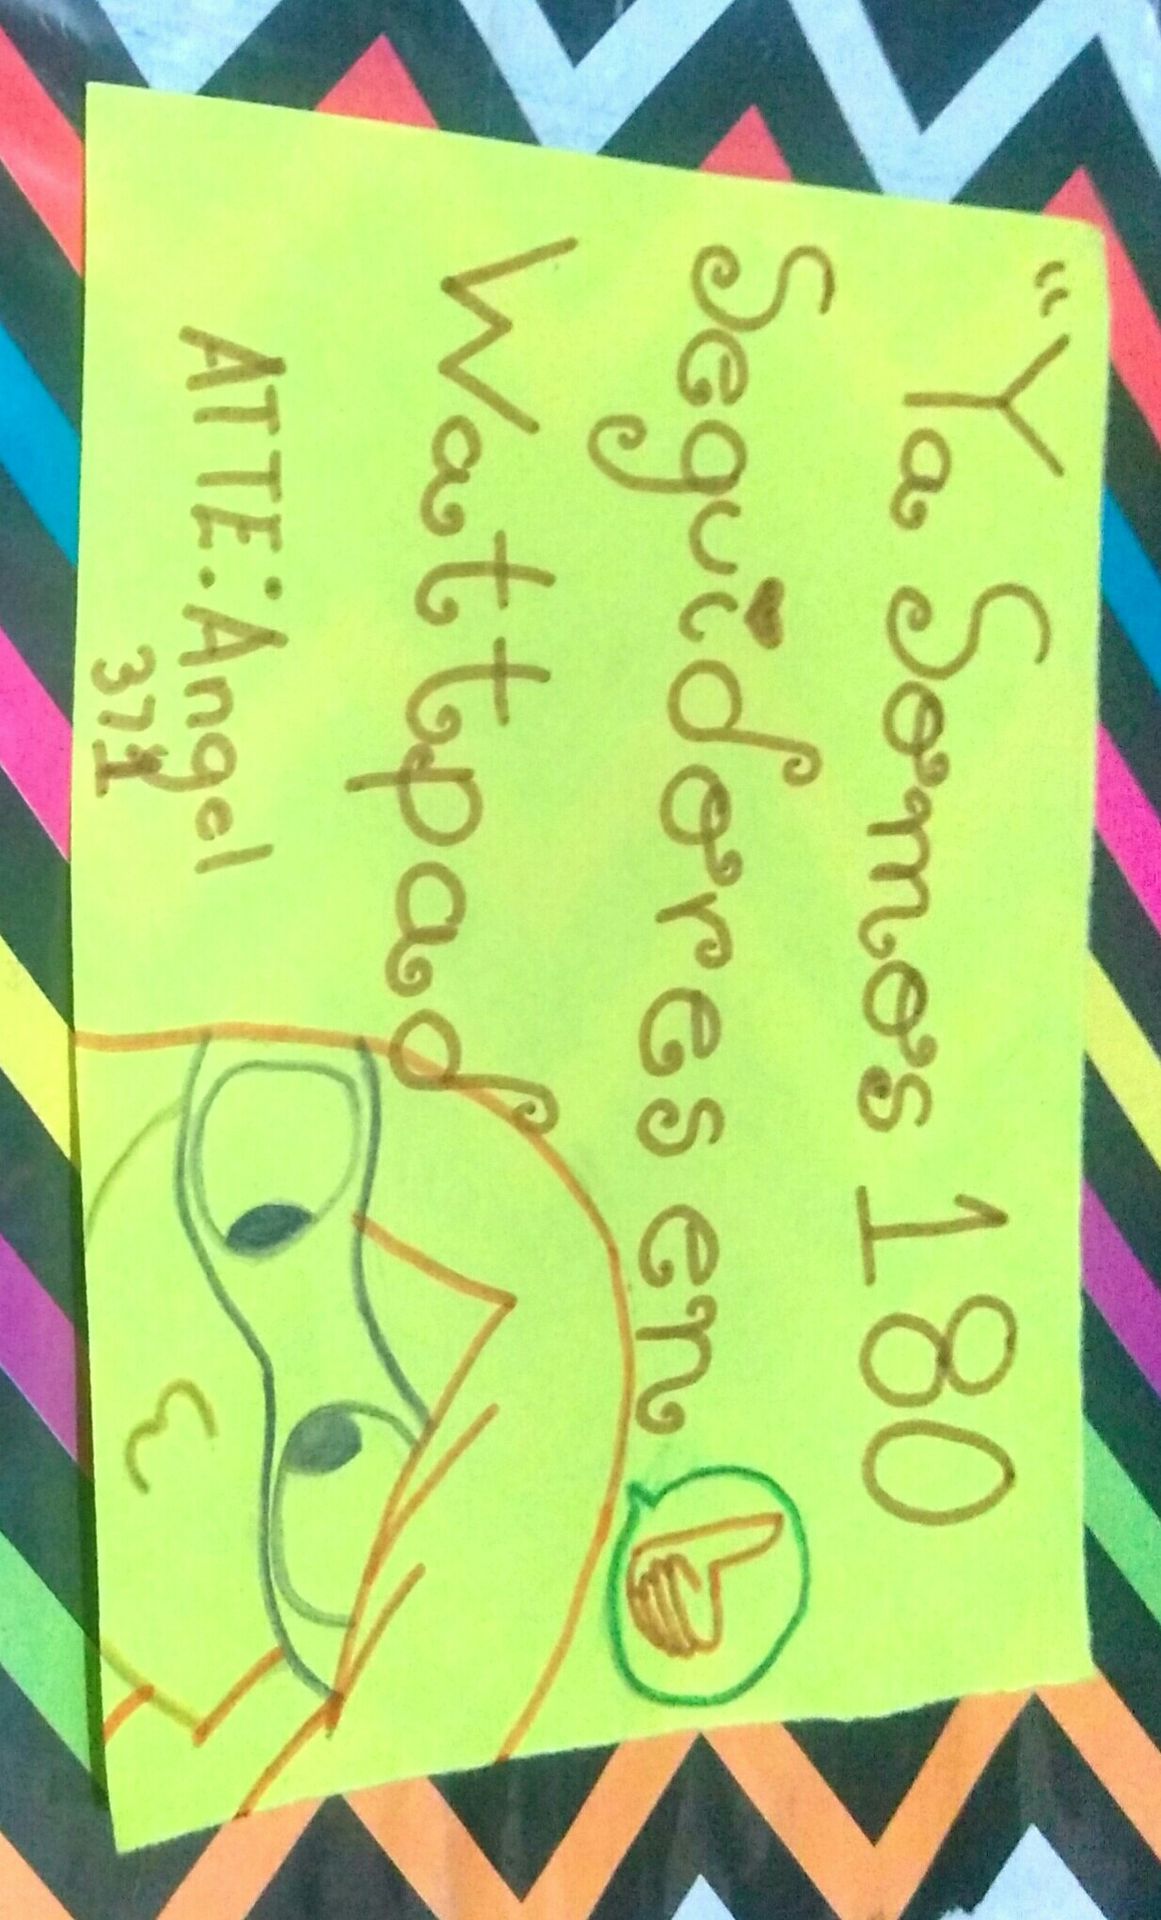 "Ya Somos 180
Seguidores en
Wattpad
ATTE: Angel
371